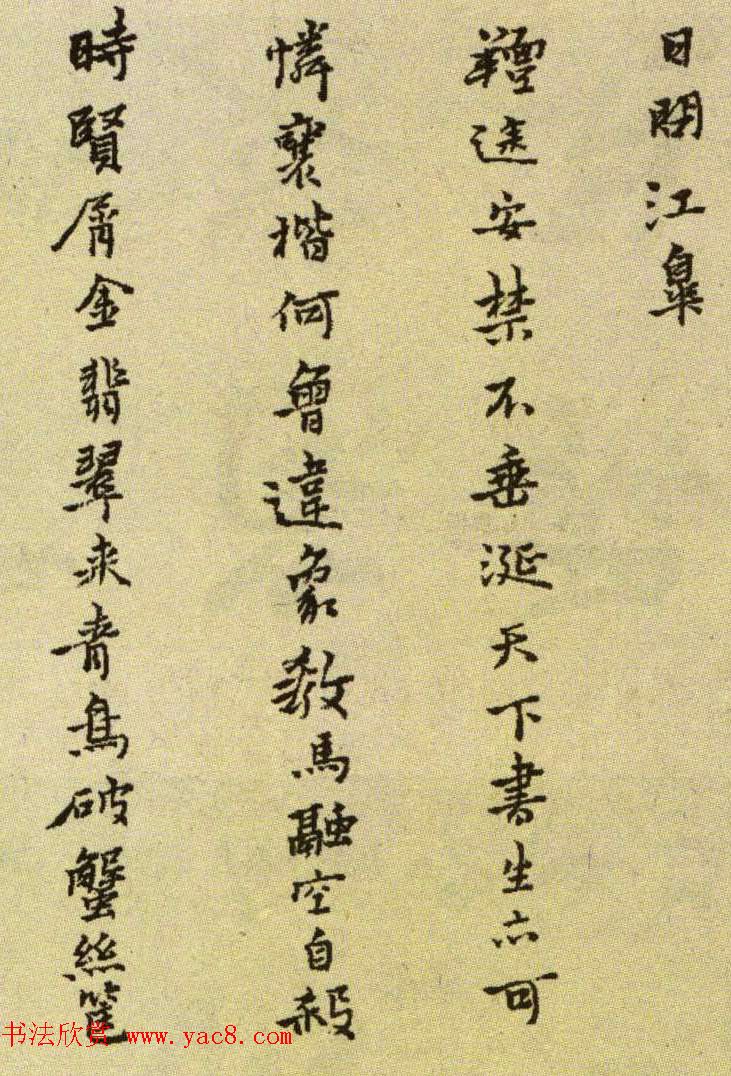 日閒江皐
羶途安禁不垂涎天下書生亦可
憐襄楷何曾違象教馬融空自殺
時賢屑金翡翠来青鳥破蟹絲筐
书法欣赏 www.yac8.com